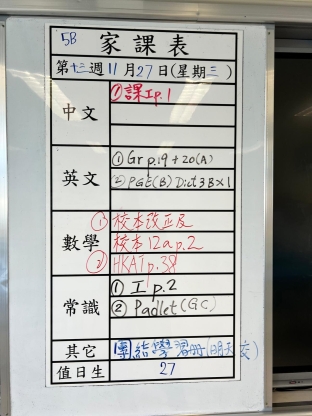 5B
家課表
第十三週 11月27日(星期三)
中文
① 課工p.1
英文
① Gr p.19+20(A)
② PGE(B) Dict 3B×1
數學
① 校本改正及
校本12a p.2
② HKAT p.38
常識
① 工p.2
② Padlet (GC)
其它
團結學習冊(明天交)
值日生
27